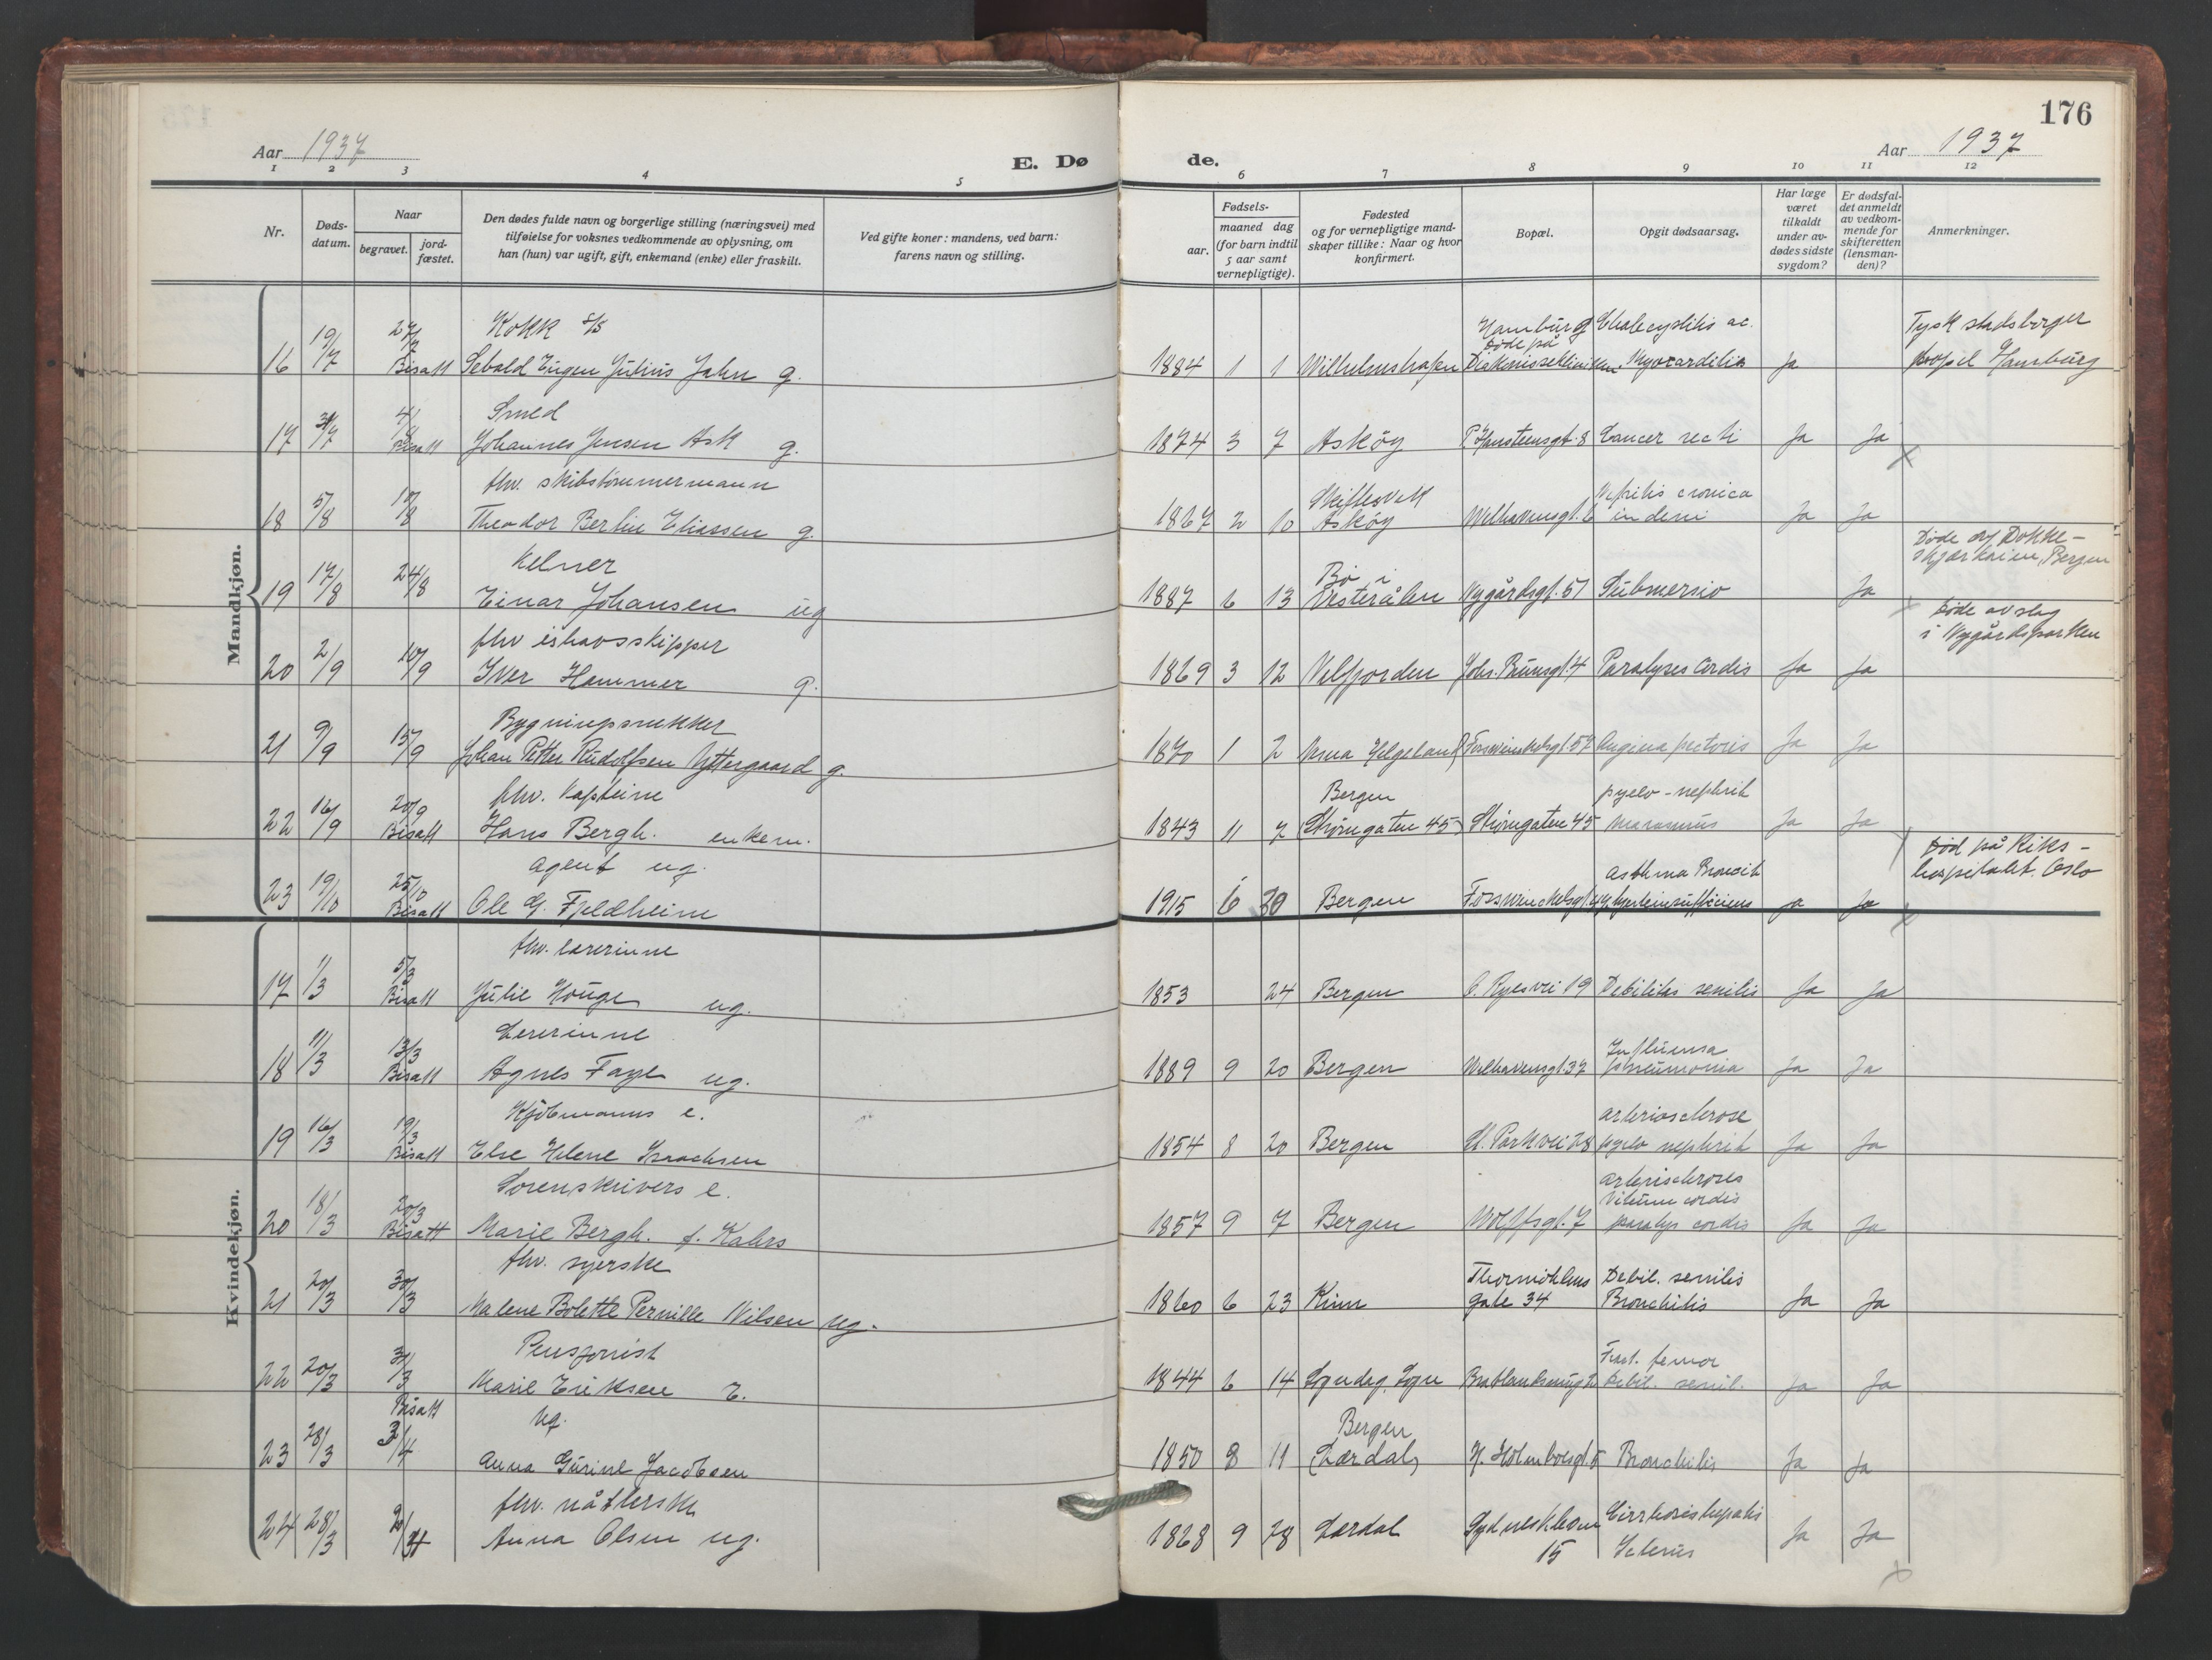 176
Aar 1937
E. Dø
de.
Aar 1937
1 2 3 4 5 6 7 8 9 10 11 12
Nr.
Døds-
datum.
Naar
begravet.
jord-
fæstet.
Den dødes fulde navn og borgerlige stilling (næringsvei) med
tilføielse for voksnes vedkommende av oplysning, om
han (hun) var ugift, gift, enkemand (enke) eller fraskilt.
Ved gifte koner: mandens, ved barn:
farens navn og stilling.
Fødsels-
aar.
maaned dag
(for barn indtil
5 aar samt
vernepligtige).
Fødested
og for vernepligtige mand-
skaper tillike: Naar og hvor
konfirmert.
Bopæl.
Opgit dødsaarsag.
Har læge
været
tilkaldt
under av-
dødes sidste
sygdom?
Er dødsfal-
det anmeldt
av vedkom-
mende for
skifteretten
(lensman-
den)?
Anmerkninger.
Mandkjøn.
Kokk s/s Hamburg Cholecystitis ac. Tysk stadsborger
død på
16 19/7 Bisatt Sebald Eugen Julius Jahn g. 1884 1 1 Wilhelmshafen Diakonisseklinikken. Myocarditis Ja bopel Hamburg
Smed
17 31/7 Bisatt Johannes Jensen Ask g. 1874 3 7 Askøy P. Hansteensgt. 8 Cancer recti Ja Ja
fhv. skibstømmermann
Nefritis cronica
18 5/8 10/8 Theodor Berlin Eliassen g. 1867 2 10 Askøy Welhavensgt. 6 Ja Ja
Døde av Dokke-
skjærkaien, Bergen
Kelner Bø i
19 17/8 24/8 Einar Johansen ug 1887 6 13 Vesterålen Nygårdsgt. 57 Submersio Ja
Døde av slag
i Nygårdsparken
fhv ishavsskipper
20 2/9 10/9 Iver Hammer g. 1869 3 12 Velfjorden Johs. Brunsgt. 4 Paralyses Cordis Ja Ja
Bygningssnekker
21 9/9 15/9 Johan Petter Rudolfsen Yttergaard g. 1870 1 2 Helgeland Fosswinckelsgt. 57 Angina pectoris Ja Ja
fhv. Kapteine Bergen pyelo-nephrit
22 16/9 20/9 Bisatt Hans Bergh. enkem. 1843 11 7 (Strømgaten 45) Strømgaten 45 marasmus Ja Ja
Død på Riks-
hospitalet. Oslo
agent ug. asthma Bronchit
23 19/10 25/10 Bisatt Ole G. Fjeldheim 1915 6 30 Bergen Fosswinckelsgt. hjerteinsufficiens Ja Ja
Kvindekjøn.
fhv. lærerinne
17 1/3 5/3 Bisatt Julie Houge ug. 1853 24 Bergen O. Ryesvei 19 Debilitas senilis Ja Ja
Lererinne Influensa
18 11/3 13/3 Bisatt Agnes Faye ug. 1889 9 20 Bergen Welhavensgt. 37 pneumonia Ja Ja
Kjøbmanns e. arteriosclerose
19 16/3 19/3 Bisatt Else Helene Isaachsen 1854 8 20 Bergen Parkvei 28 pyelo nephrit Ja Ja
Sorenskrivers e. arteriscleroses
Vitium cordis
20 18/3 20/3 Bisatt Marie Bergh. f. Kahrs 1857 9 7 Bergen Wolffsgt. 7 paralys cordis Ja Ja
fhv. syerske Thormøhlens Debil. senilis
21 20/3 30/3 Malene Bolette Pernille Nilsen ug. 1860 6 23 Kinn gate 34 Bronchitis Ja Ja
Pensjonist Fract. femor
22 20/3 31/3 Marie Eriksen E. 1844 6 14 Sogndag, Sogn Debil. senil. Ja Ja
Bisatt
ug. Bergen
23 28/3 3/4 Anna Gurine Jacobsen 1850 8 11 (Lærdal) H. Holmboesgt. 5 Bronchitis Ja Ja
fhv. nåtlerske Sydneskleven Cirrhosis hepatis
24 28/3 2/4 Anna Olsen ug. 1868 9 28 Lærdal 15 Icterus Ja Ja